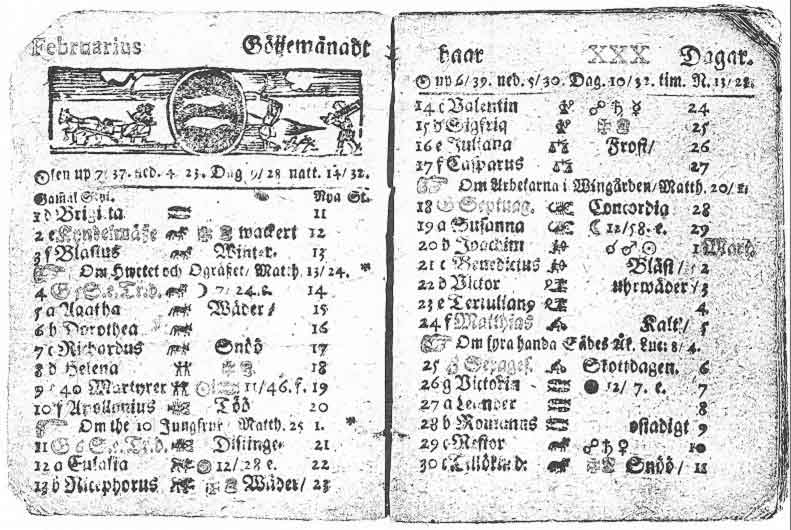 Februarius Götjemånadt
Solen up 7/37. ned. 4. 23. Dag 9/28 natt. 14/32.
Gamal Styl. Nya St.
1 d Brigitta 11
2 e Kyndelmässe wackert 12
3 f Blasius Winter. 13
Om Hwetet och Ogräset/ Matth. 13/24.
4 G 5 S. e. Tr. d. 7/24. e. 14
5 a Agatha Wäder/ 15
6 b Dorothea 16
7 c Richardus Snöö 17
8 d Helena 18
9 e 40 Martyrer 11/46. f. 19
10 f Apollonius Töö 20
Om the 10 Jungfrur/ Matth. 25 1.
11 G 6 S. e. Tr. d. Distinge. 21
12 a Eulalia 12/28 e. 22
13 b Nicephorus Wäder/ 23
haar XXX Dagar.
up 6/39. ned. 5/30. Dag. 10/32. tim. N. 13/28.
14 c Valentin ☍ ♄ ☿ 24
15 d Sigfrid 25
16 e Juliana Frost/ 26
17 f Casparus 27
Om Arbetarna i Wingården/ Matth. 20/1.
18 G Septuag. Concordia 28
19 a Susanna ☾ 12/58. e. 29
20 b Joachim ☌ ♂ ☉ 1 Mart.
21 c Benedictus Bläst/ 2
22 d Victor uhrwäder/ 3
23 e Tertulian9 4
24 f Matthias Kalt/ 5
Om fyra handa Sädes Åk. Luc: 8/4.
25 G Sexages. Skottdagen. 6
26 g Victorin ● 12/7. e. 7
27 a Leander 8
28 b Romanus ostadigt 9
29 c Nestor ☍ ♄ ♀ 10
30 c Snöö/ 11